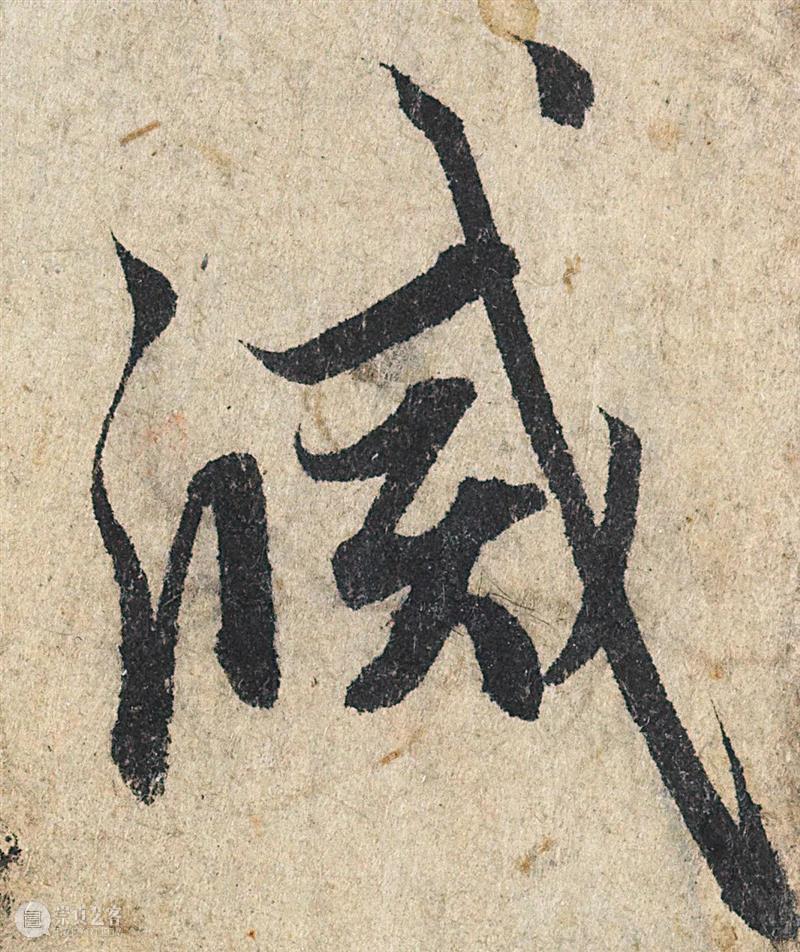 滅
崇真艺客